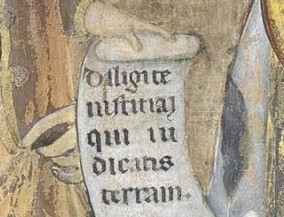 diligite
iustitiaʒ
qui iu
dicatis
terram.